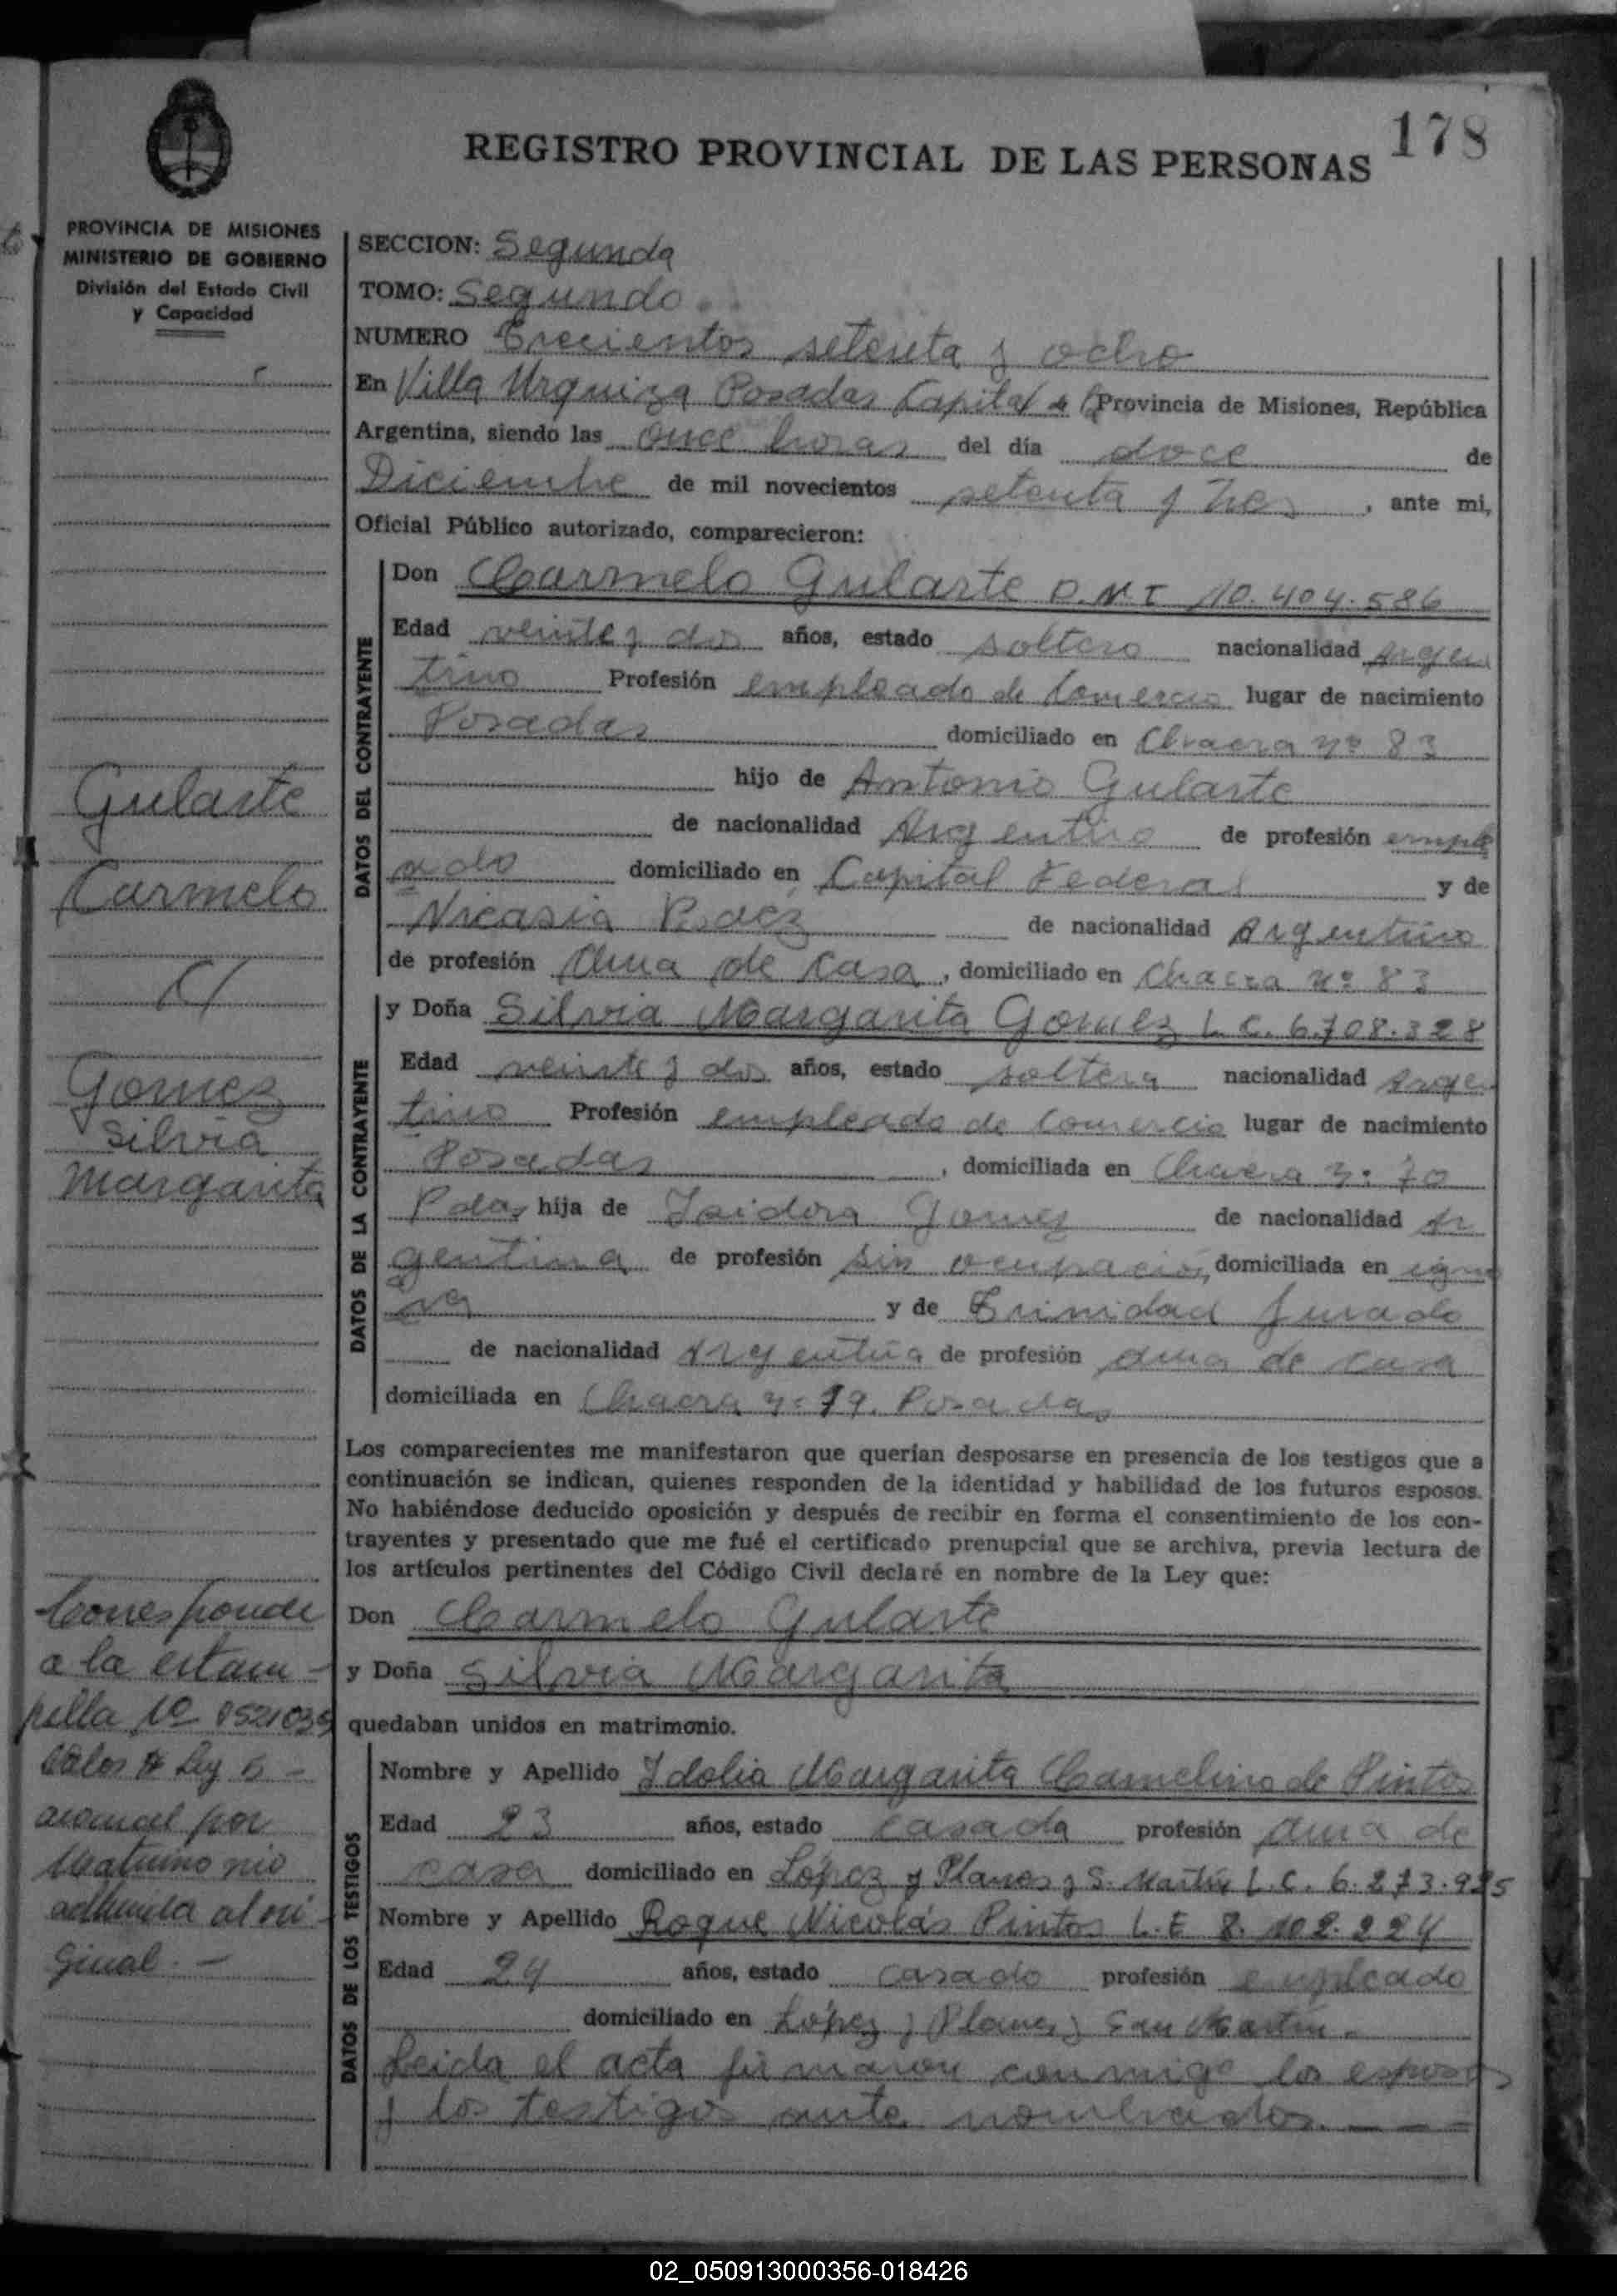 178
REGISTRO PROVINCIAL DE LAS PERSONAS
PROVINCIA DE MISIONES
MINISTERIO DE GOBIERNO
División del Estado Civil
y Capacidad
SECCION: Segunda
TOMO: Segundo
NUMERO Trecientos setenta y ocho
En Villa Urquiza Posadas Capital de la Provincia de Misiones, República
Argentina, siendo las once horas del día doce de
Diciembre de mil novecientos setenta y tres, ante mi,
Oficial Público autorizado, comparecieron:
DATOS DEL CONTRAYENTE
Don Carmelo Gularte D.N.I 10.404.586
Edad veinte y dos años, estado soltero nacionalidad Argen
tino Profesión empleado de Comercio lugar de nacimiento
Posadas domiciliado en Chacra nº 83
hijo de Antonio Gularte
de nacionalidad Argentino de profesión emple
ado domiciliado en Capital Federal y de
Nicasia Baez de nacionalidad Argentina
de profesión Ama de Casa, domiciliado en Chacra nº 83
DATOS DE LA CONTRAYENTE
y Doña Silvia Margarita Gomez L.C. 6.708.328
Edad veinte y dos años, estado soltera nacionalidad Argen
tino Profesión empleada de Comercio lugar de nacimiento
Posadas, domiciliada en Chacra nº 70
Pdas hija de Isidora Gomez de nacionalidad Ar
gentina de profesión sin ocupación domiciliada en igno
ra y de Trinidad Jurado
de nacionalidad Argentina de profesión ama de casa
domiciliada en Chacra nº 79. Posadas
Los comparecientes me manifestaron que querían desposarse en presencia de los testigos que a
continuación se indican, quienes responden de la identidad y habilidad de los futuros esposos.
No habiéndose deducido oposición y después de recibir en forma el consentimiento de los con-
trayentes y presentado que me fué el certificado prenupcial que se archiva, previa lectura de
los artículos pertinentes del Código Civil declaré en nombre de la Ley que:
Don Carmelo Gularte
y Doña Silvia Margarita
quedaban unidos en matrimonio.
DATOS DE LOS TESTIGOS
Nombre y Apellido Idolia Margarita Camelino de Pintos
Edad 23 años, estado casada profesión ama de
casa domiciliado en López y Planes y S. Martín L.C. 6.273.925
Nombre y Apellido Roque Nicolás Pintos L.E 8.102.224
Edad 24 años, estado casado profesión empleado
domiciliado en López y Planes y San Martín -
Leida el acta firmaron conmigo los esposos
y los testigos ante nombrados. — — —
Gularte
Carmelo
c/
Gomez
Silvia
Margarita
Corresponde
a la estam-
pilla Nº 0521039
arancel por
Matrimonio
adherida al ori-
ginal. -
02_050913000356-018426